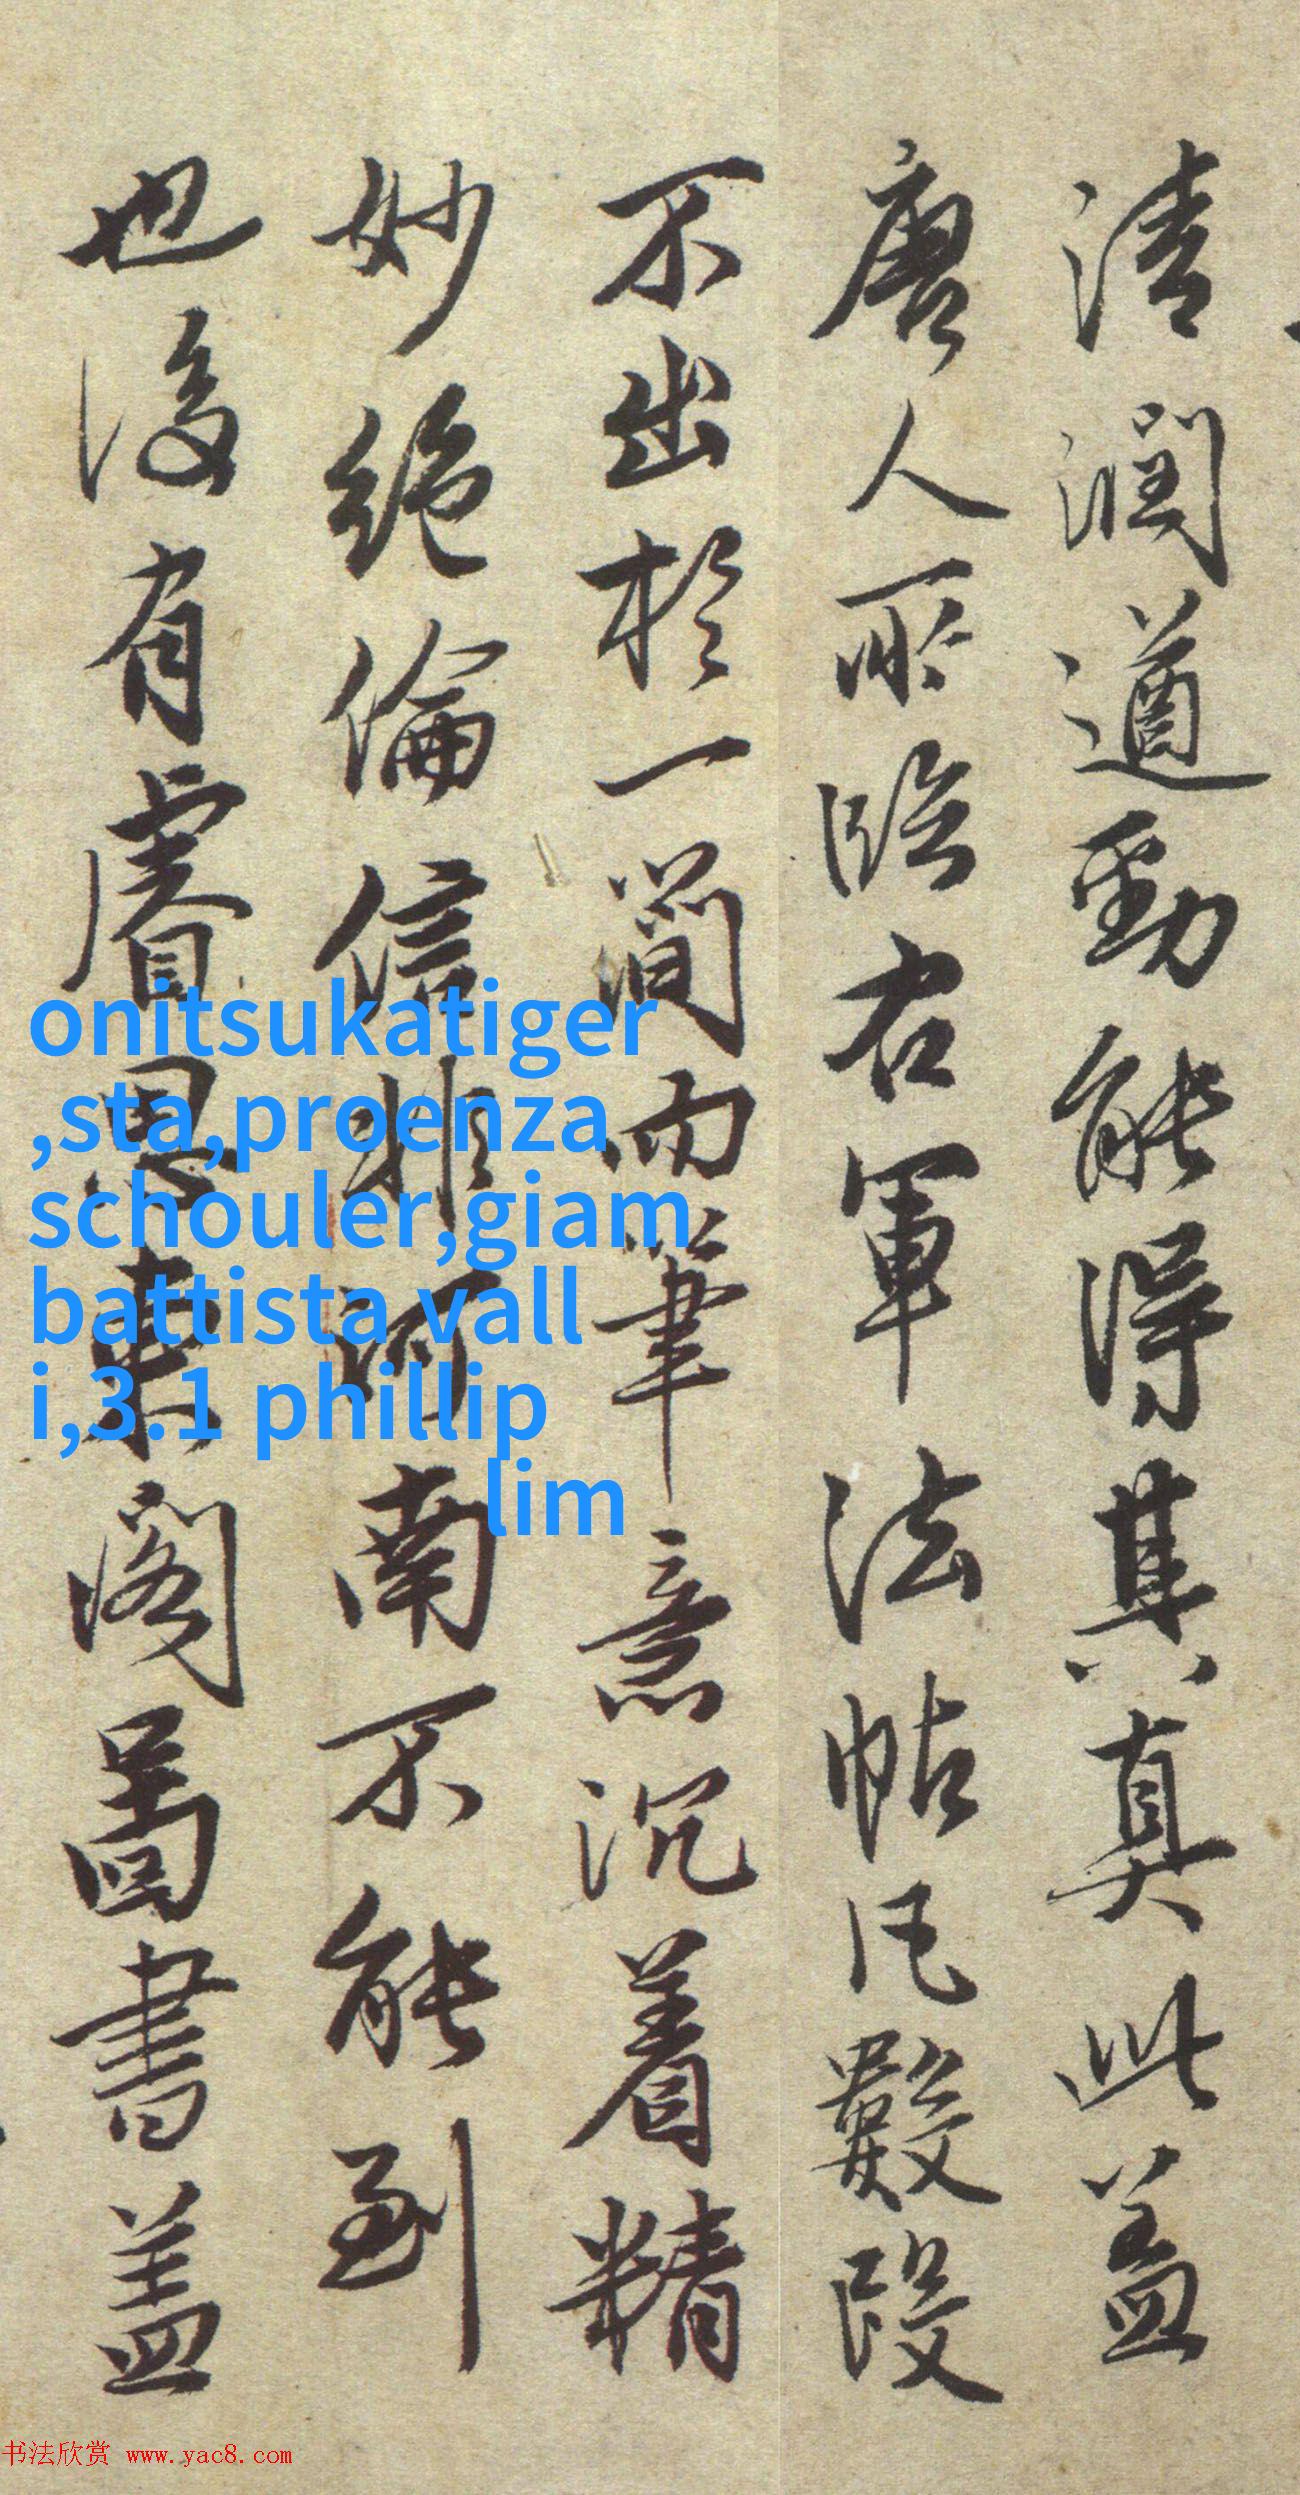 清润遒勁能得其真真此盖
唐人所临右軍法帖凡數段
不出於一簡而筆意沉着精
妙絶倫信非河南不能到
也後有睿思東阁圖書盖
onitsukatiger
,sta,proenza
schouler,giam
battista vall
i,3.1 phillip
lim
书法欣赏 www.yac8.com